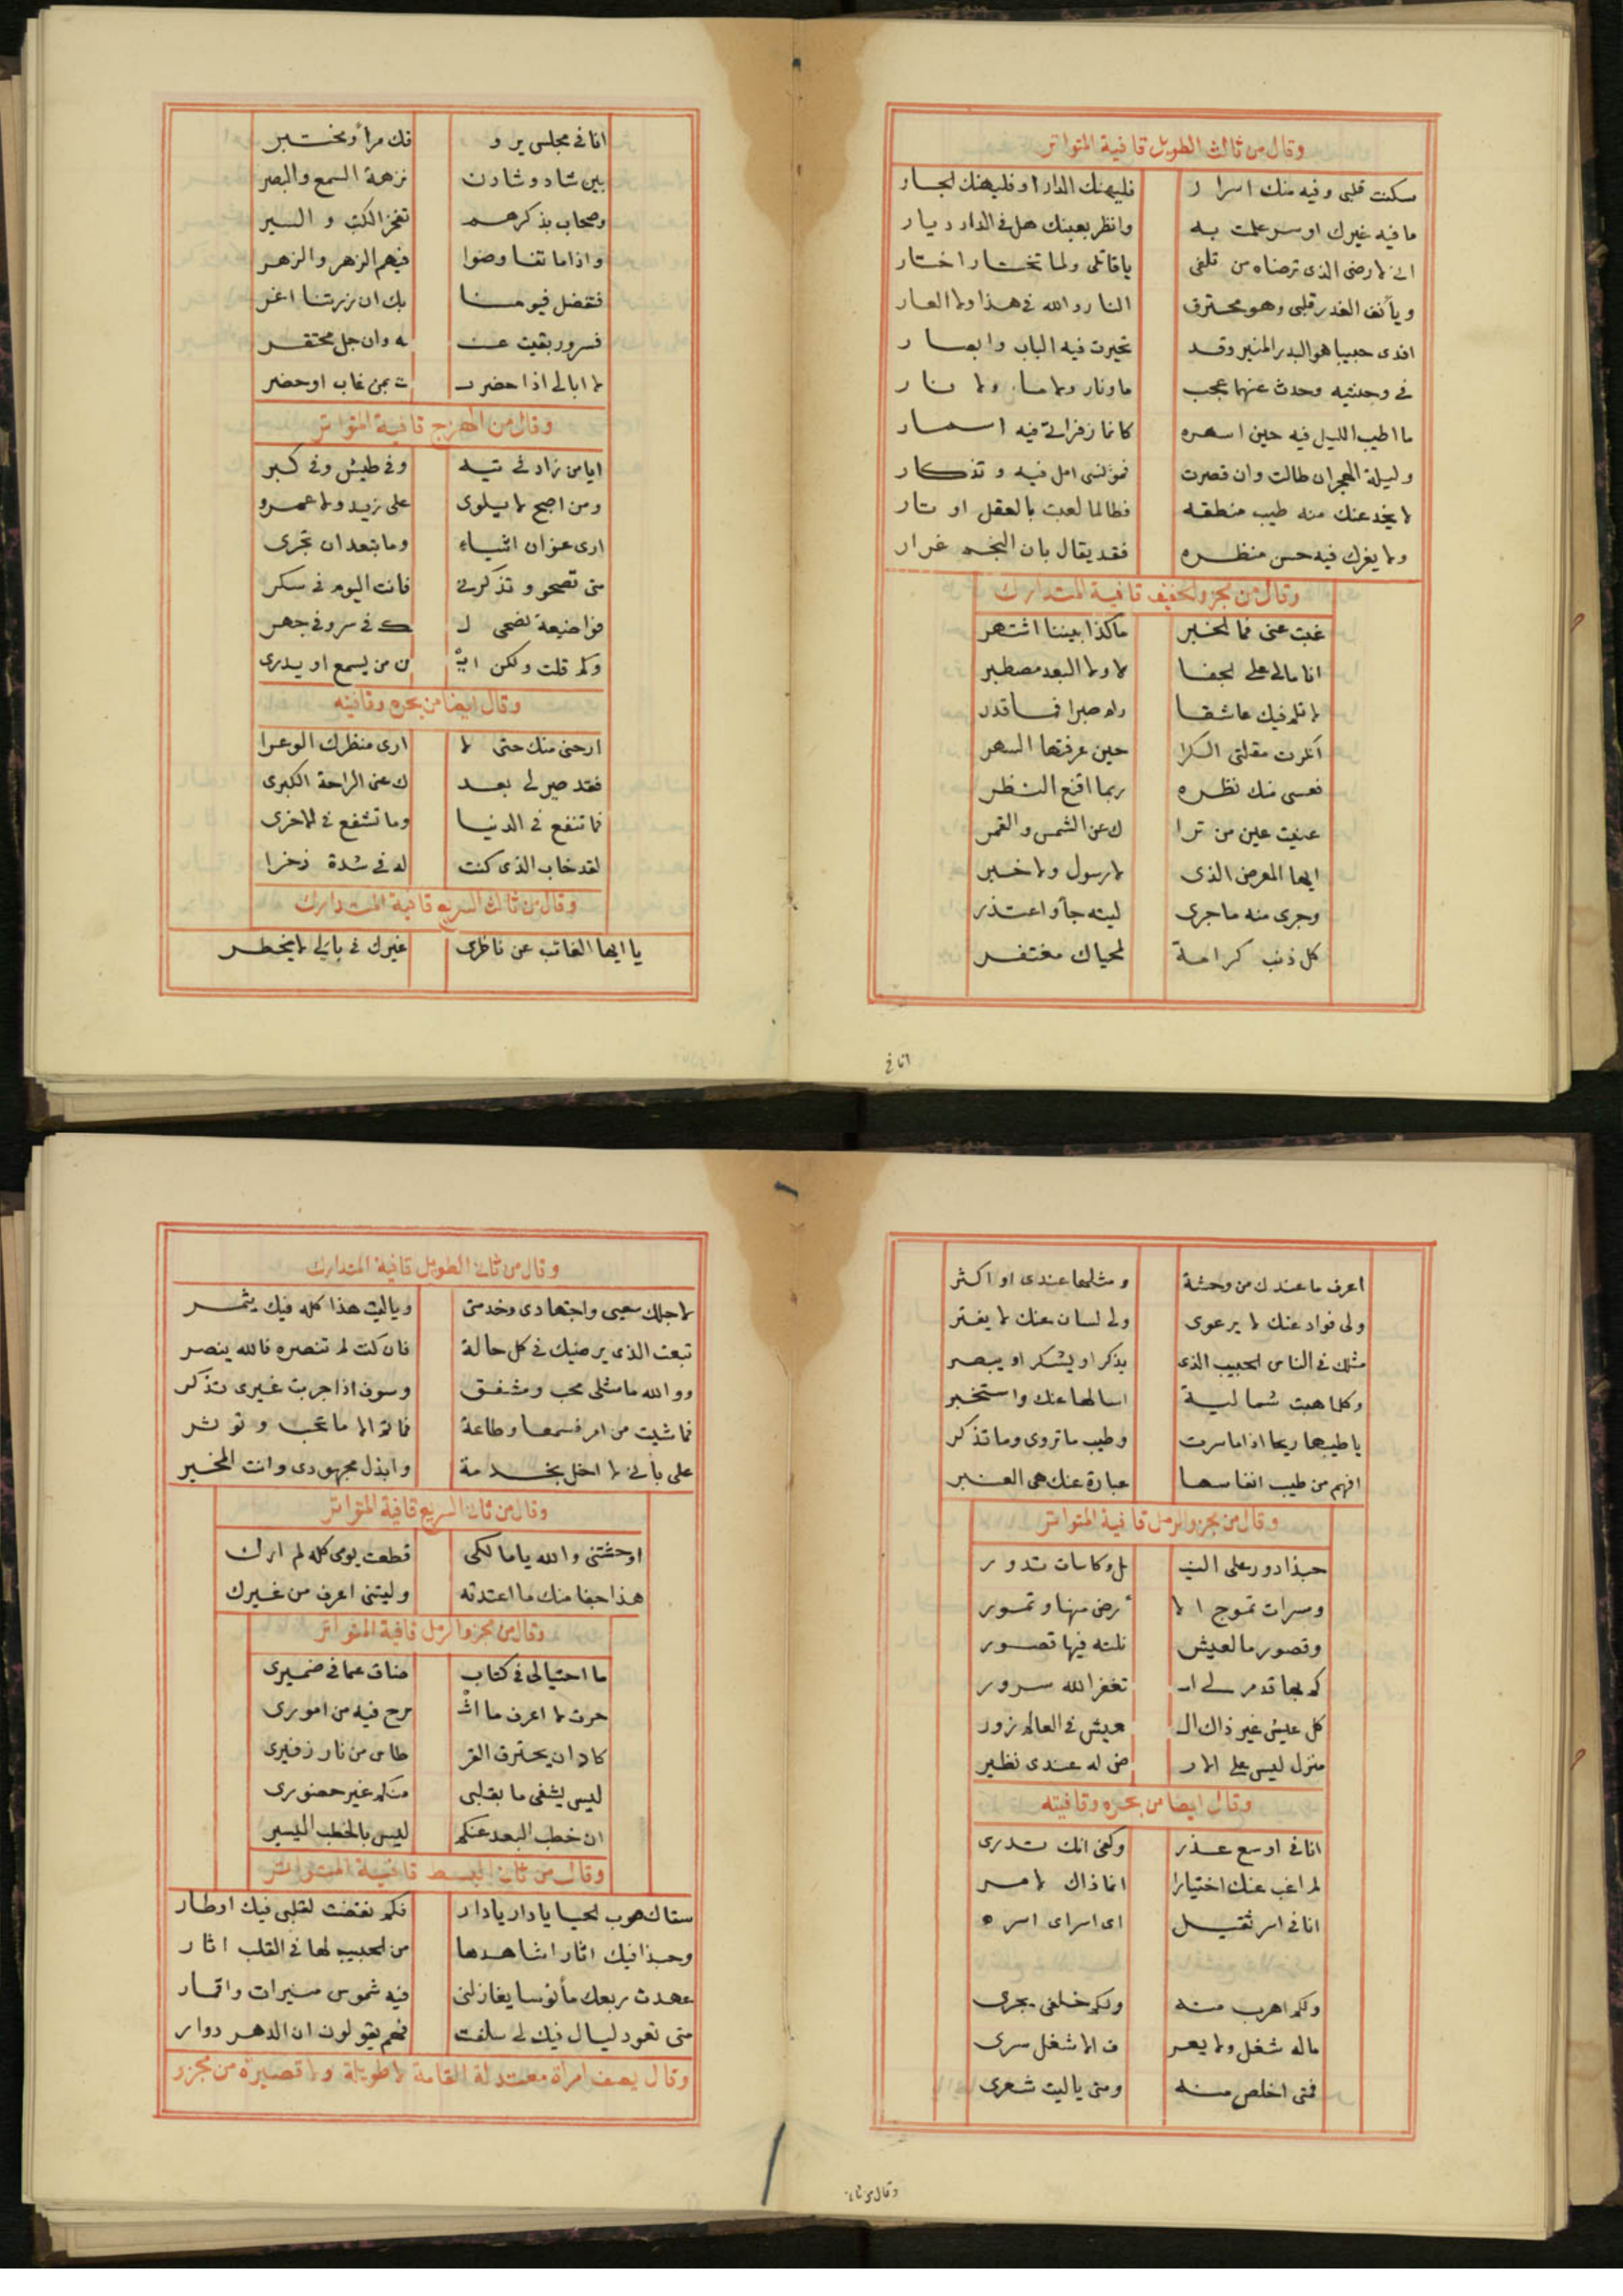 وقال من ثالث الطويل قافية المتواتر
سكنت قلبى وفيه منك اسرار فليهنك الدار او فليهنك لجار
ما فيه غيرك او سر علمت به وانظر بعينك هل فى الدار ديار
انى لارضى الذى ترضاه من تلفى يا قاتلى ولما تختار اختار
ويأنف الغدر قلبى وهو محترق النار والله فى هذا ولا العار
افدى حبيبا هو البدر المنير وقد تحيرت فيه الباب وابصار
فى وجنتيه وحدث عنهما عجب ماونار ولا ماء ولا نار
ما اطيب الليل فيه حين اسهره كانما زفراتى فيه اسمار
وليلة الهجر ان طالت وان قصرت فمؤنسى امل فيه وتذكار
لا يخدعنك منه طيب منطقه فطالما لعبت بالعقل اوتار
ولا يغرك فيه حسن منظره فقد يقال بان النجم غرار
وقال من مجزو الخفيف قافية المتدارك
غبت عنى فما لخبر ماكذا بيننا اشتهر
انا مالى على لجفا لا ولا البعد مصطبر
لا تلم فيك عاشقا رام صبرا فما قدر
انكرت مقلتى الكرا حين عرفتها السهر
فعسى منك نظره ربما اقنع النظر
غنيت عين من ترا ك عن الشمس والقمر
ايها المعرض الذى لا رسول ولا خبر
وجرى منه ما جرى ليته جأ واعتذر
كل ذنب كرامة لمحياك مغتفر
انا فى
انا فى مجلس يرو قك مرأ ومختبر
بين شاد وشادن نزهة السمع والبصر
وصحاب بذكرهم تفخر الكتب والسير
واذا ما تفاوضوا فيهم الزهر والزهر
فتفضل فيومنا بك ان زرتنا اغر
فسرور بقيت عنـ ـه وان جل محتقر
لا ابالى اذا حضر ت بمن غاب او حضر
وقال من الهزج قافية المتواتر
ايا من زاد فى تيه وفى طيش وفى كبر
ومن اصبح لا يلوى على زيد ولا عمرو
ارى عنوان اشياء وما بتعد ان تجرى
متى تصحو وتذكرنى فانت اليوم فى سكر
فواضيعة نصحى لـ ـك فى سر وفى جهر
وكم قلت ولكن ايـ ـن من يسمع او يدرى
وقال ايضا من بحره وقافيته
ارحنى منك حتى لا ارى منظرك الوعرا
فقد صيرلى بعد ك عنى الراحة الكبرى
فما تنفع فى الدنيا وما تشفع فى الاخرى
لقد خاب الذى كنت له فى شدة ذخرا
وقال من ثالث السريع قافية المتدارك
يا ايها الغائب عن ناظرى غيرك فى بالى لا يخطر
اعرف ما عندك من وحشة ومثلها عندى او اكثر
ولى فواد عنك لا يرعوى ولى لسان عنك لا يفتر
مثلك فى الناس لحبيب الذى يذكر او يشكر او يبصر
وكلما هبت شمالية اسالها عنك واستخبر
يا طيبها ريحا اذا ما سرت وطيب ما تروى وما تذكر
افهم من طيب انفاسها عبارة عنك هى العنبر
وقال من مجزو الرمل قافية المتواتر
حبذا دور على النيـ ـل وكاسات تدور
ومسرات تموج الا رض منها وتمور
وقصور مالعيش نلته فيها قصور
كم بها قد مر لى اسـ تغفر الله سرور
كل عيش غير ذاك الـ ـعيش فى العالم زور
منزل ليس على الار ض له عندى نظير
وقال ايضا من بحره وقافيته
انا فى اوسع عذر وكفى انك تدرى
لم اغب عنك اختيارا انما ذاك لامر
انا فى اسر ثقيل اى اسر اى اسره
ولكم اهرب منه ولكم خلفى يجرى
ماله شغل ولا يعر ف الا شغل سرى
فمتى اخلص منه ومتى ياليت شعرى
وقال من ثان
وقال من ثانى الطويل قافية المتدارك
لاجلك سعيى واجتهادى وخدمتى وياليت هذا كله فيك يثمر
تبعت الذى يرضيك فى كل حالة فان كنت لم تنصره فالله ينصر
ووالله ما مثلى محب ومشفق وسوف اذا جربت غيرى تذكر
فما شيت من امر فسمعا وطاعة فما ثم الا ما تحب وتوثر
على بأنى لا اخل بخدمة وابذل مجهودى وانت المخير
وقال من ثانى السريع قافية المتواتر
اوحشتنى والله يا مالكى قطعت يومى كله لم ارك
هذا جفا منك ما اعتدته وليتنى اعرف من غيرك
وقال من مجزو الرمل قافية المتواتر
ما احتيالى فى كتاب ضاق عما فى ضميرى
حرت لا اعرف ما اشـ ـرح فيه من امورى
كاد ان يحترق القر طاس من نار زفيرى
ليس يشفى ما بقلبى منكم غير حضورى
ان خطب البعد عنكم ليس بالخطب اليسير
وقال من ثانى البسيط قافية المتواتر
سقاك صوب لحيا يا دار يا دار فكم تقضت لقلبى فيك اوطار
وحبذا فيك اثار اشاهدها من لحبيب لها فى القلب اثار
عهدت ربعك مأنوسا يغازلنى فيه شموس منيرات واقمار
متى تعود ليال فيك لى سلفت فهم يقولون ان الدهر دوار
وقال يصف امرأة معتدلة القامة لا طويلة ولا قصيرة من مجزو